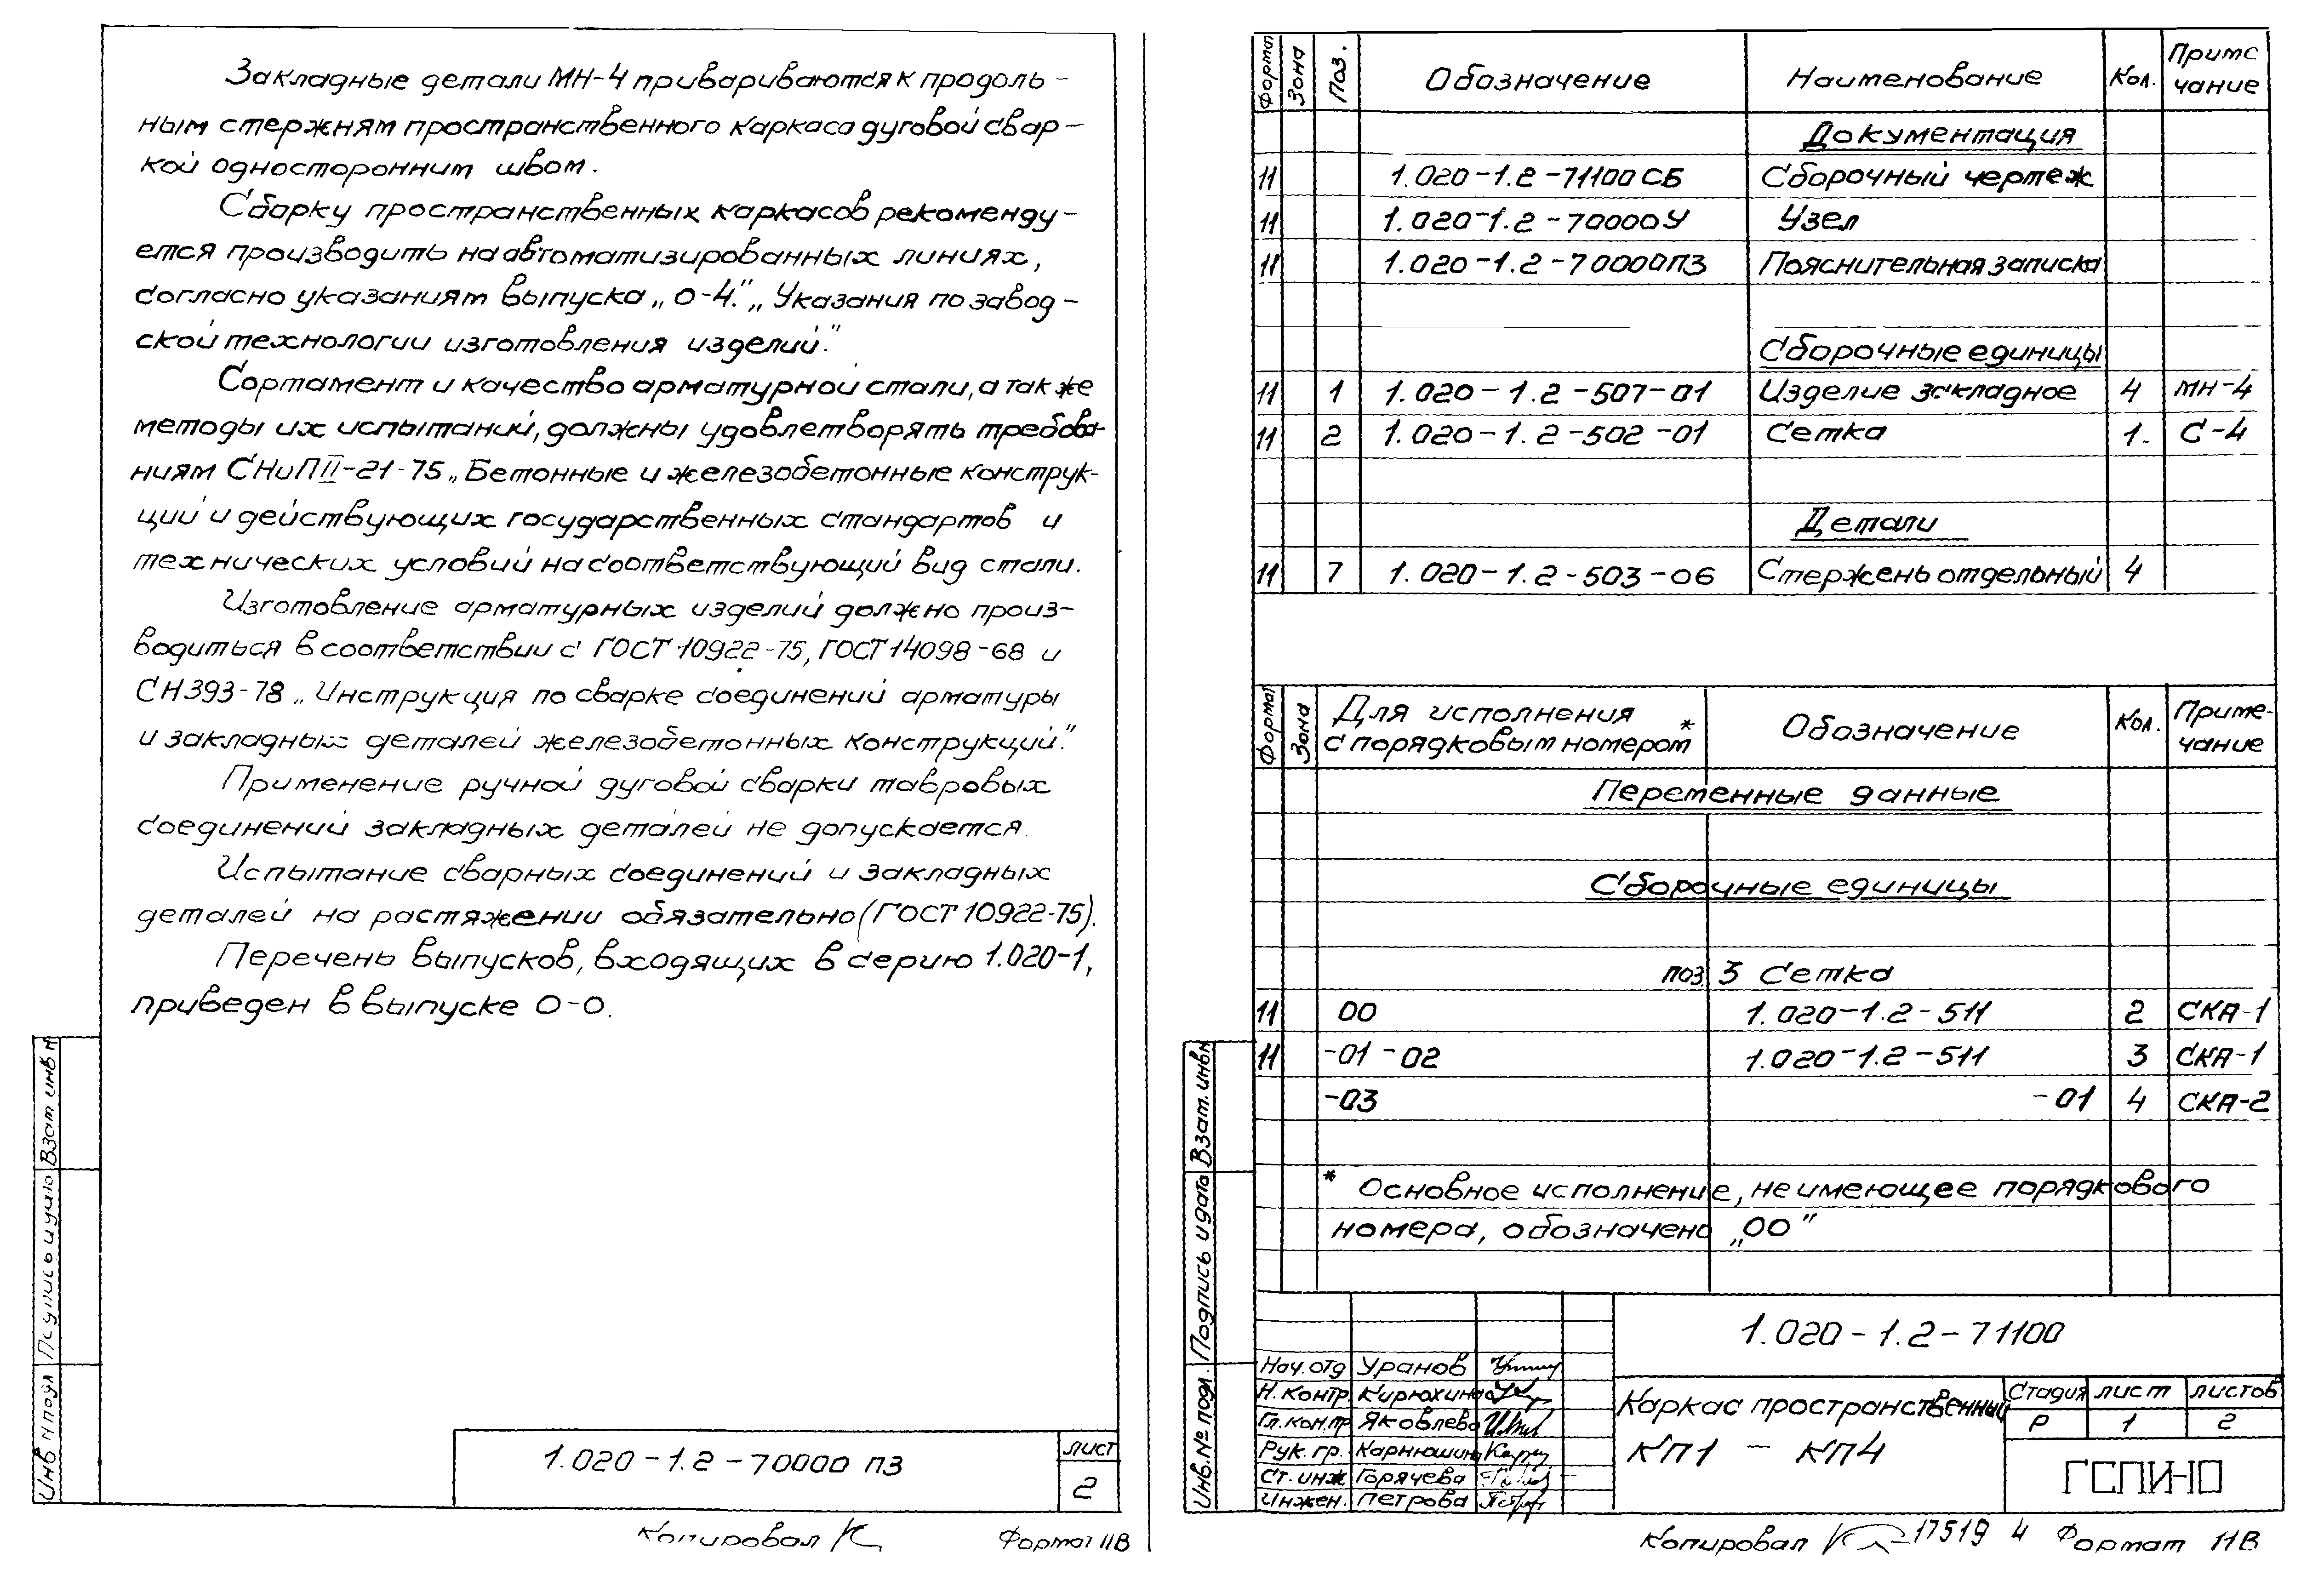 Закладные детали МН-4 привариваются к продоль-
ным стержням пространственного каркаса дуговой свар-
кой односторонним швом.
Сборку пространственных каркасов рекоменду-
ется производить на автоматизированных линиях,
согласно указаниям выпуска „0-4." „Указания по завод-
ской технологии изготовления изделий."
Сортамент и качество арматурной стали, а так же
методы их испытаний, должны удовлетворять требова-
ниям СНиП II-21-75 „Бетонные и железобетонные конструк-
ций и действующих государственных стандартов и
технических условий на соответствующий вид стали.
Изготовление арматурных изделий должно произ-
водиться в соответствии с ГОСТ 10922-75, ГОСТ 14098-68 и
СН 393-78 „Инструкция по сварке соединений арматуры
и закладных деталей железобетонных конструкций."
Применение ручной дуговой сварки тавровых
соединений закладных деталей не допускается.
Испытание сварных соединений и закладных
деталей на растяжении обязательно (ГОСТ 10922-75).
Перечень выпусков, входящих в серию 1.020-1,
приведен в выпуске 0-0.
Инв N подл. Подпись и дата Взам инв N
1.020-1.2-70000 ПЗ
лист
2
Копировал
Формат 11В
Формат Зона Поз. Обозначение Наименование Кол. Приме чание
Документация
11 1.020-1.2-71100 СБ Сборочный чертеж
11 1.020-1.2-70000У Узел
11 1.020-1.2-70000ПЗ Пояснительная записка
Сборочные единицы
11 1 1.020-1.2-507-01 Изделие закладное 4 МН-4
11 2 1.020-1.2-502-01 Сетка 1. С-4
Детали
11 7 1.020-1.2-503-06 Стержень отдельный 4
Формат Зона Для исполнения с порядковым номером * Обозначение Кол. Приме- чание
Переменные данные
Сборочные единицы
поз. 3 Сетка
11 00 1.020-1.2-511 2 СКА-1
11 -01 -02 1.020-1.2-511 3 СКА-1
-03 -01 4 СКА-2
* Основное исполнение, не имеющее порядкового
номера, обозначено „00"
Инв. № подл. Подпись и дата Взам. инв N
1.020-1.2-71100
Нач. отд Уранов
Н. контр Кирюхина
Гл. констр Яковлева
Рук. гр. Карнюшина
Ст. инж Горячева
Инжен. Петрова
Каркас пространственный
КП1 - КП4
Стадия лист листов
Р 1 2
ГСПИ-10
Копировал 17519 4 Формат 11В